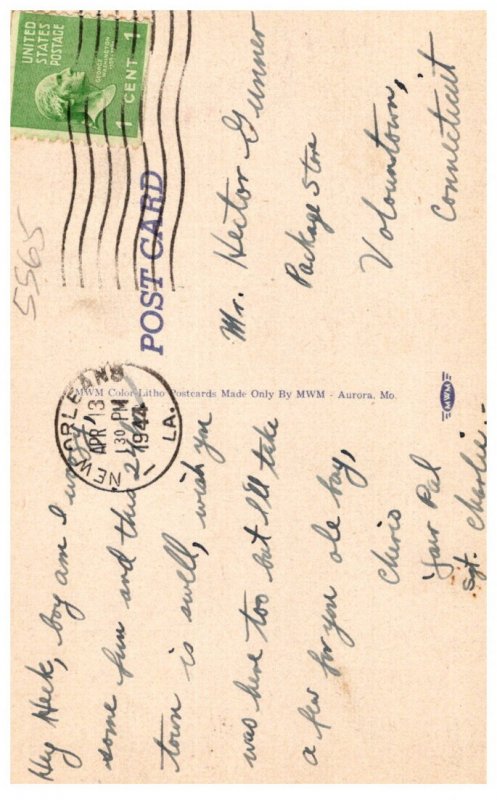 UNITED
STATES
POSTAGE
GEORGE
WASHINGTON
1 CENT 1
5565
POST CARD
NEW ORLEANS
APR 13
1 30 PM
1944
LA.
Hey Heck, boy am I
some fun and this
town is swell, wish you
was here too but I'll take
a few for you ole boy,
Cherio
Your Pal
Sgt. Charlie.-
MWM Color-Litho Postcards Made Only By MWM - Aurora, Mo.
MWM
Mr. Hector Gunner
Package Store
Voluntown,
Connecticut